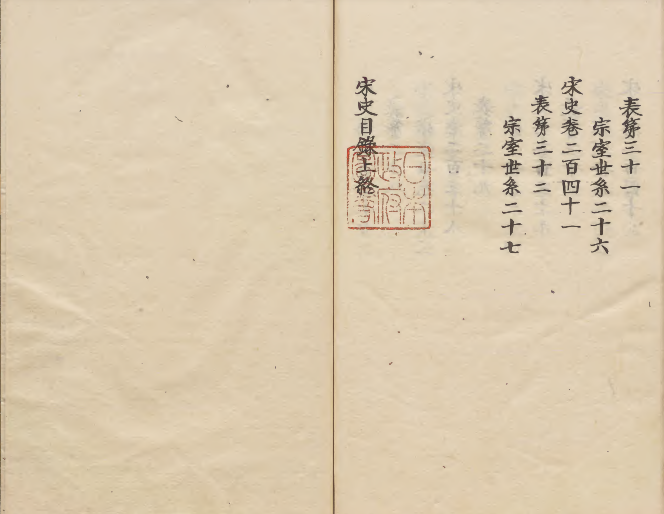 表第三十一
宗室世系二十六
宋史卷二百四十一
表第三十二
宗室世系二十七
宋史目錄上終
日本
政府
圖書